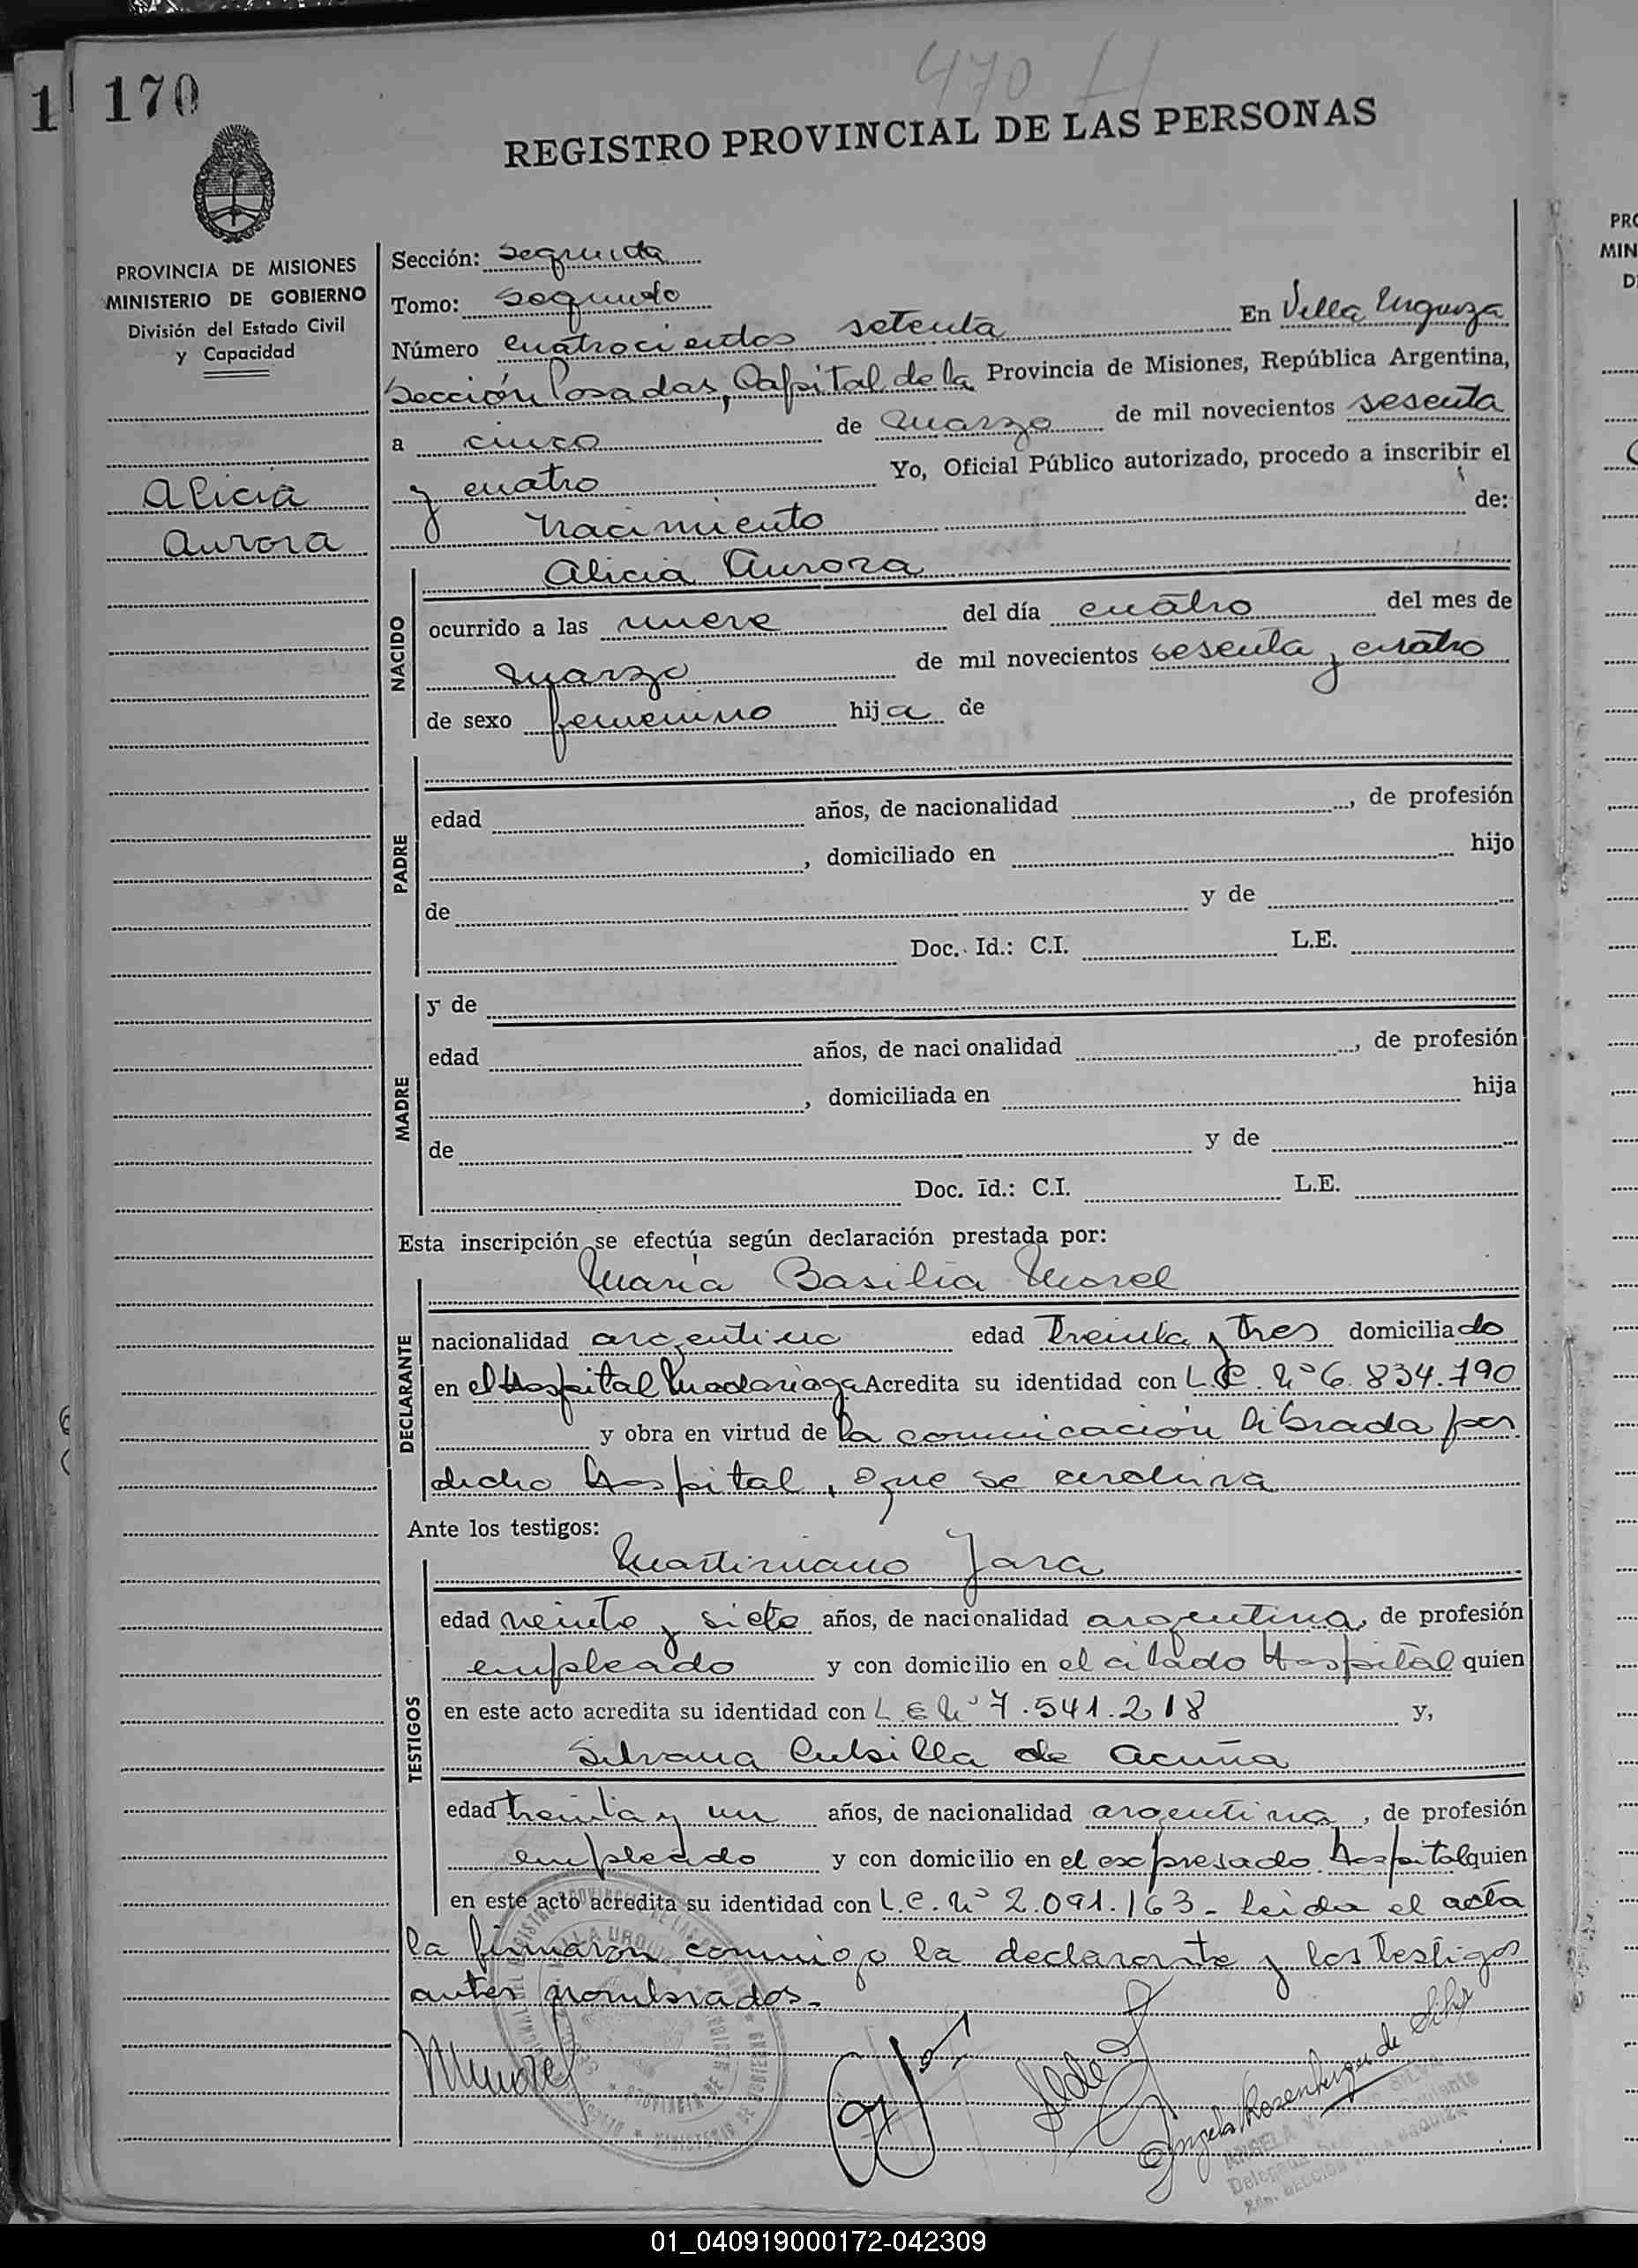 470
1 170
REGISTRO PROVINCIAL DE LAS PERSONAS
PROVINCIA DE MISIONES
MINISTERIO DE GOBIERNO
División del Estado Civil
y Capacidad
Alicia
Aurora
Sección: Segunda
Tomo: Segundo
Número cuatrocientos setenta En Villa Urquiza
Sección Posadas, Capital de la Provincia de Misiones, República Argentina,
a cinco de Marzo de mil novecientos sesenta
y cuatro Yo, Oficial Público autorizado, procedo a inscribir el
nacimiento de:
NACIDO
Alicia Aurora
ocurrido a las nueve del día cuatro del mes de
Marzo de mil novecientos sesenta y cuatro
de sexo femenino hija de
PADRE
edad años, de nacionalidad , de profesión
, domiciliado en hijo
de y de
Doc. Id.: C.I. L.E.
MADRE
y de
edad años, de nacionalidad , de profesión
, domiciliada en hija
de y de
Doc. Id.: C.I. L.E.
Esta inscripción se efectúa según declaración prestada por:
DECLARANTE
María Basilia Morel
nacionalidad argentina edad Treinta y tres domiciliado
en el Hospital Madariaga Acredita su identidad con L.C. Nº 6.834.790
y obra en virtud de la comunicación librada por
dicho Hospital, que se archiva
Ante los testigos:
TESTIGOS
Martiniano Jara
edad veinte y siete años, de nacionalidad argentina, de profesión
empleado y con domicilio en el citado Hospital quien
en este acto acredita su identidad con L E Nº 7.541.218 y,
Silvana Cubilla de Acuña
edad treinta y un años, de nacionalidad argentina, de profesión
empleado y con domicilio en el expresado Hospital quien
en este acto acredita su identidad con L.C. Nº 2.091.163 - Leida el acta
la firmaron conmigo la declarante y los testigos
antes nombrados.-
MMorel
Angela Rosenberger de Silva
01_040919000172-042309